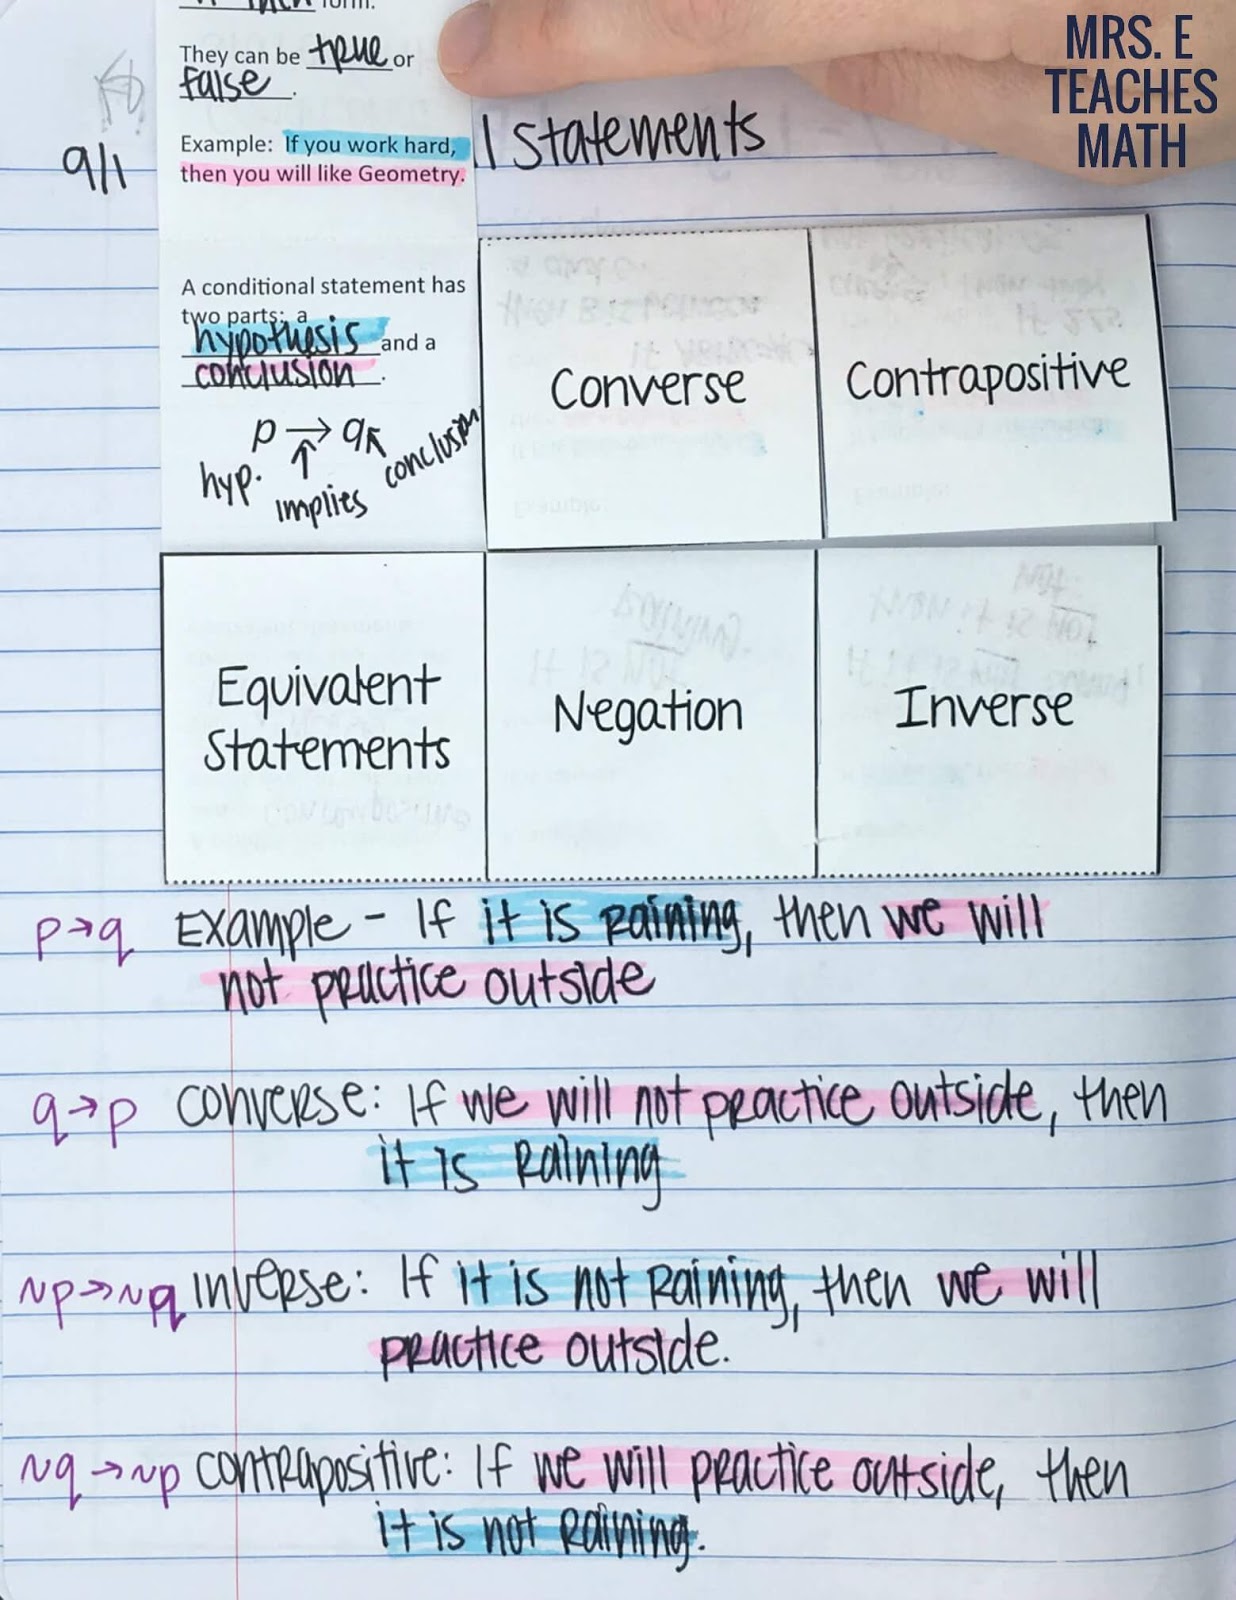 MRS. E
TEACHES
MATH
then form.
They can be true or
false.
9/1
Example: If you work hard,
then you will like Geometry.
l statements
A conditional statement has
two parts: a
hypothesis and a
conclusion.
p → q
hyp. implies conclusion
Converse
Contrapositive
Equivalent
Statements
Negation
Inverse
p→q Example - If it is raining, then we will
not practice outside
q→p converse: If we will not practice outside, then
it is raining
~p→~q inverse: If it is not raining, then we will
practice outside.
~q→~p contrapositive: If we will practice outside, then
it is not raining.